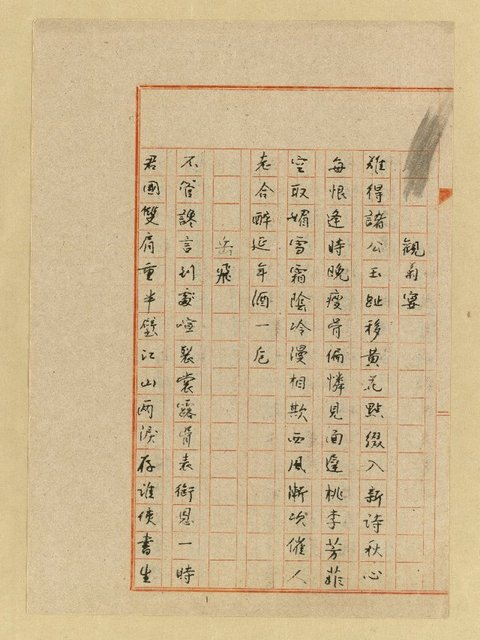 觀菊宴
難得諸公玉趾移黃花點綴入新詩秋心
每恨逢時晚瘦骨偏憐見面遲桃李芳菲
空取媚雪霜陰冷漫相欺西風漸次催人
老合醉延年酒一卮
岳飛
不管讒言到處喧裂裳露背表銜恩一時
君國雙肩重半壁江山兩淚存誰使書生